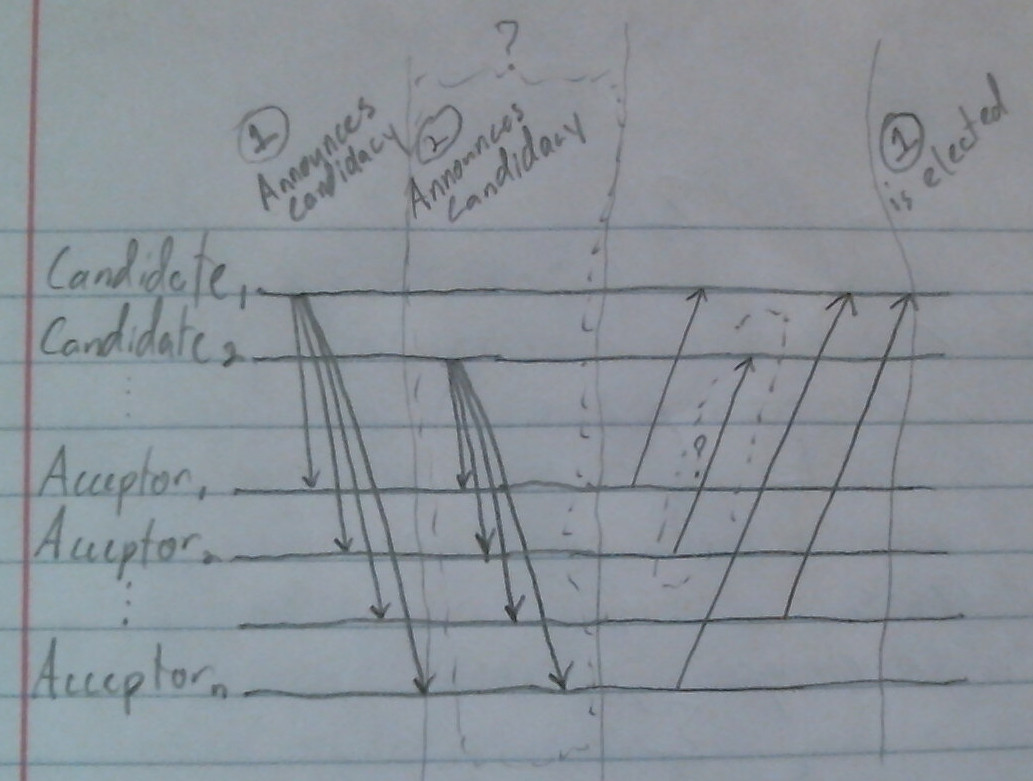 ?
① Announces
candidacy
② Announces
candidacy
① is elected
Candidate₁
Candidate₂
Acceptor₁
?
Acceptor₂
Acceptorₙ